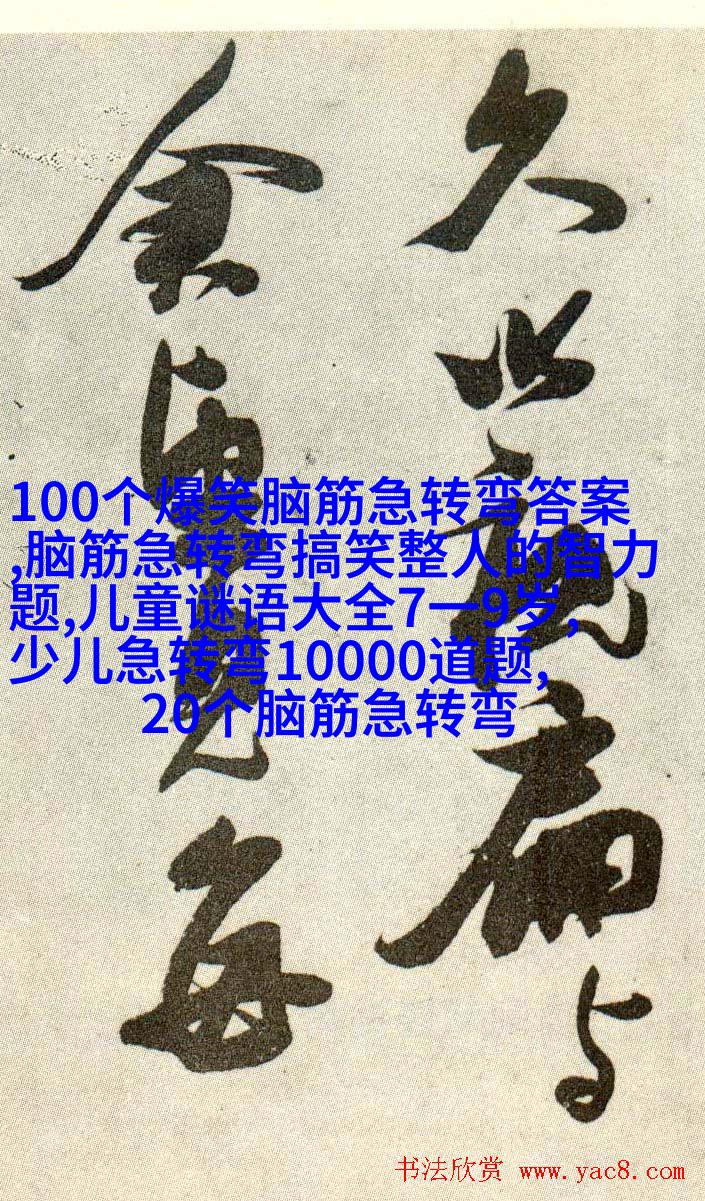 久此扁与
余見每
100个爆笑脑筋急转弯答案
,脑筋急转弯搞笑整人的智力
题,儿童谜语大全7一9岁,
少儿急转弯10000道题,
20个脑筋急转弯
书法欣赏 www.yac8.com